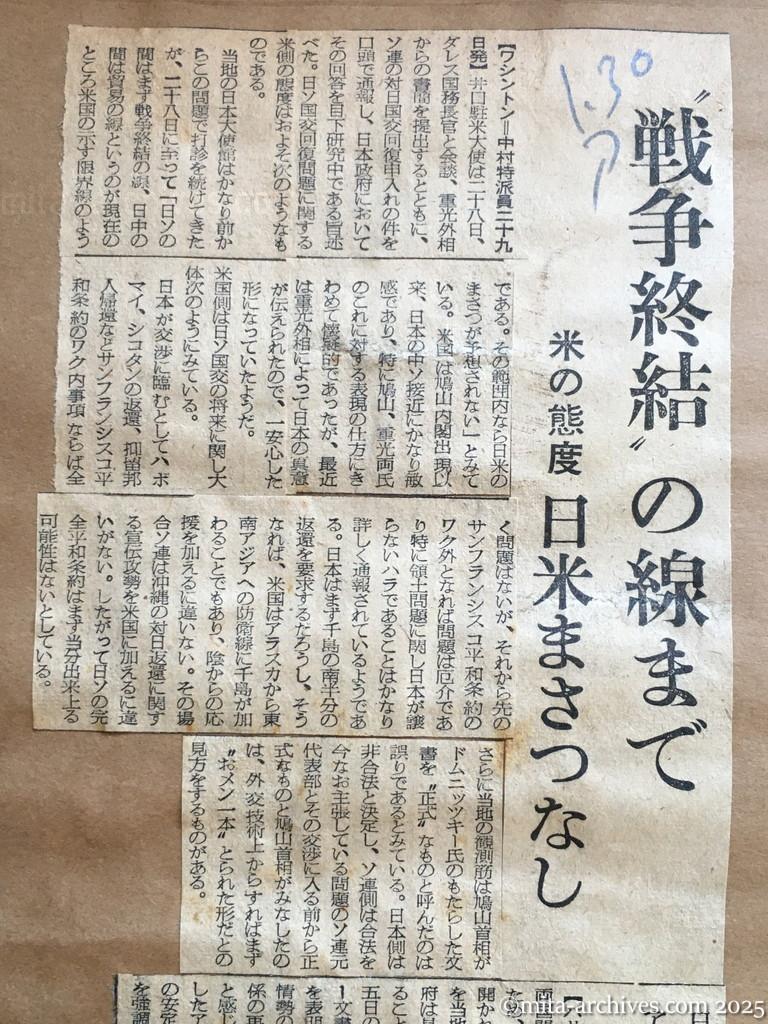 1.30
ア
〝戦争終結〟の線まで
米の態度 日米まさつなし
【ワシントン＝中村特派員二十九
日発】井口駐米大使は二十八日、
ダレス国務長官と会談、重光外相
からの書簡を提出するとともに、
ソ連の対日国交回復申入れの件を
口頭で通報し、日本政府において
その回答を目下研究中である旨述
べた。日ソ国交回復問題に関する
米側の態度はおよそ次のようなも
のである。
当地の日本大使館はかなり前か
らこの問題で打診を続けてきた
が、二十八日に至って「日ソの
間はまず戦争終結の線、日中の
間は貿易の線というのが現在の
ところ米国の示す限界線のよう
である。その範囲内なら日米の
まさつが予想されない」とみて
いる。米国は鳩山内閣出現以
来、日本の中ソ接近にかなり敏
感であり、特に鳩山、重光両氏
のこれに対する表現の仕方にき
わめて懐疑的であったが、最近
は重光外相によって日本の真意
が伝えられたので、一安心した
形になっていたようだ。
米国側は日ソ国交の将来に関し大
体次のようにみている。
日本が交渉に臨むとしてハボ
マイ、シコタンの返還、抑留邦
人帰還などサンフランシスコ平
和条約のワク内事項ならば全
く問題はないが、それから先の
サンフランシスコ平和条約の
ワク外となれば問題は厄介であ
り特に領土問題に関し日本が譲
らないハラであることはかなり
詳しく通報されているようであ
る。日本はまず千島の南半分の
返還を要求するだろうし、そう
なれば、米国はアラスカから東
南アジアへの防衛線に千島が加
わることでもあり、陰からの応
援を加えるに違いない。その場
合ソ連は沖縄の対日返還に関す
る宣伝攻勢を米国に加えるに違
いがない。したがって日ソの完
全平和条約はまず当分出来上る
可能性はないとしている。
さらに当地の観測筋は鳩山首相が
ドムニツキー氏のもたらした文
書を〝正式〟なものと呼んだのは
誤りであるとみている。日本側は
非合法と決定し、ソ連側は合法を
今なお主張している問題のソ連元
代表部とその交渉に入る前から正
式なものと鳩山首相がみなしたの
は、外交技術上からすればまず
〝おメン一本〟とられた形だとの
見方をするものがある。
両国間
開かれ
を当地
府は見
ること
五日の
ー文書
を表明
情勢の
係の再
と感じ
したア
の安定
を強調
©mita-archives.com 2025